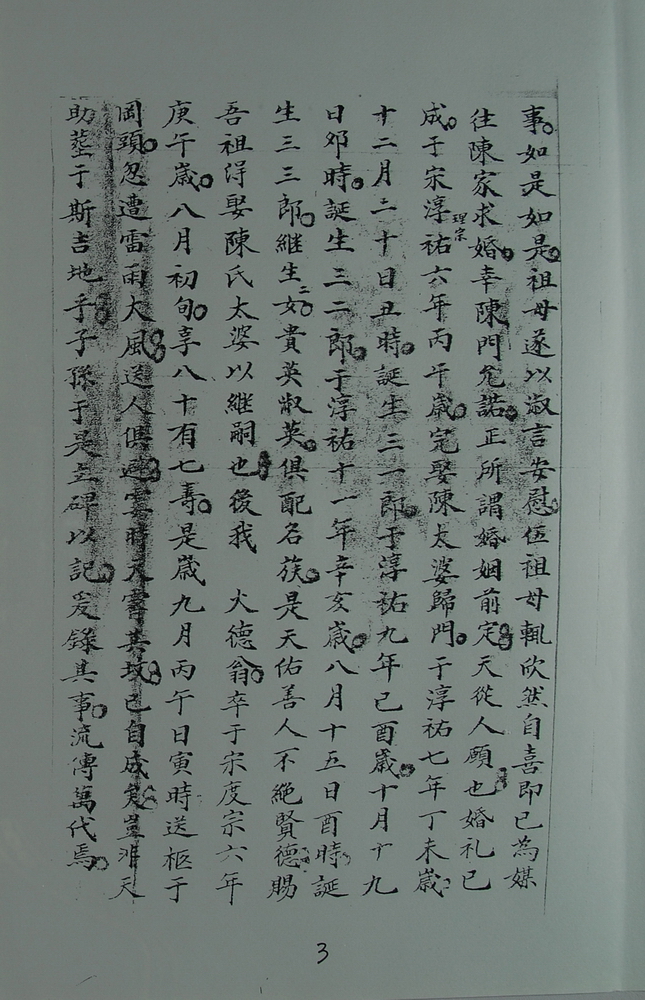 事如是如是祖母遂以淑言安慰伍祖母輒欣然自喜即已為媒
往陳家求婚幸陳門允諾正所謂婚姻前定天從人願也婚礼已
成于宋理宗淳祐六年丙午歲完娶陳太婆歸門于淳祐七年丁未歲
十二月二十日丑時誕生三一郎于淳祐九年己酉歲十月十九
日卯時誕生三二郎于淳祐十一年辛亥歲八月十五日酉時誕
生三三郎継生二女貴英淑英俱配名族是天佑善人不絶賢德賜
吾祖淂娶陳氏太婆以继嗣也後我 火德翁卒于宋度宗六年
庚午歲八月初旬享八十有七壽是歲九月丙午日寅時送柩于
岡頭忽遭雷雨大風送人俱避雲時天霽其墳已自成矣豈非天
助塟于斯吉地乎子孫于是立碑以記爰錄其事流傳萬代焉
3